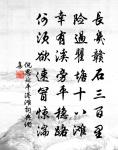 長與贛石三百里
險過瞿塘十八灘
幸有溪旁平穩路
何須欲速冒驚湍